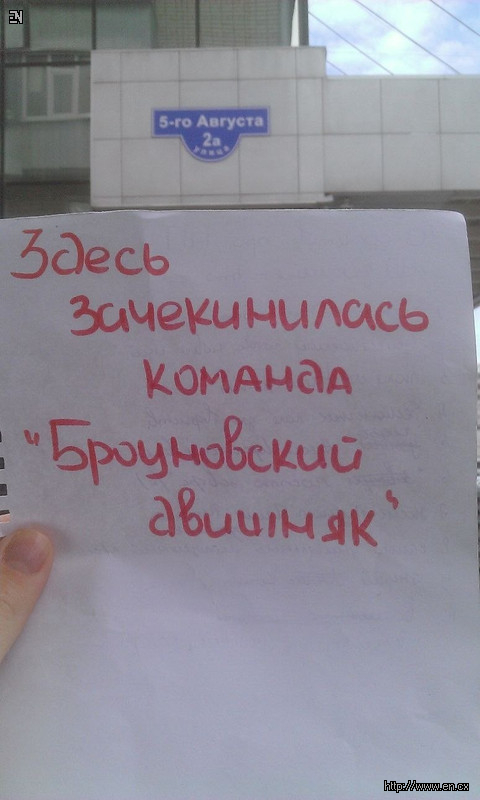 EN
5-го Августа
2а
улица
Здесь
зачекинилась
команда
"Броуновский
движняк"
http://www.en.cx